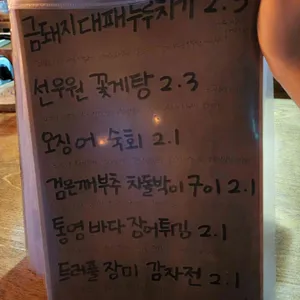 금돼지 대패누룩차기 2.3
선우원 꽃게탕 2.3
오징어 숙회 2.1
검은깨부추 차돌박이구이 2.1
통영 바다 장어튀김 2.1
트러플 장미 감자전 2.1